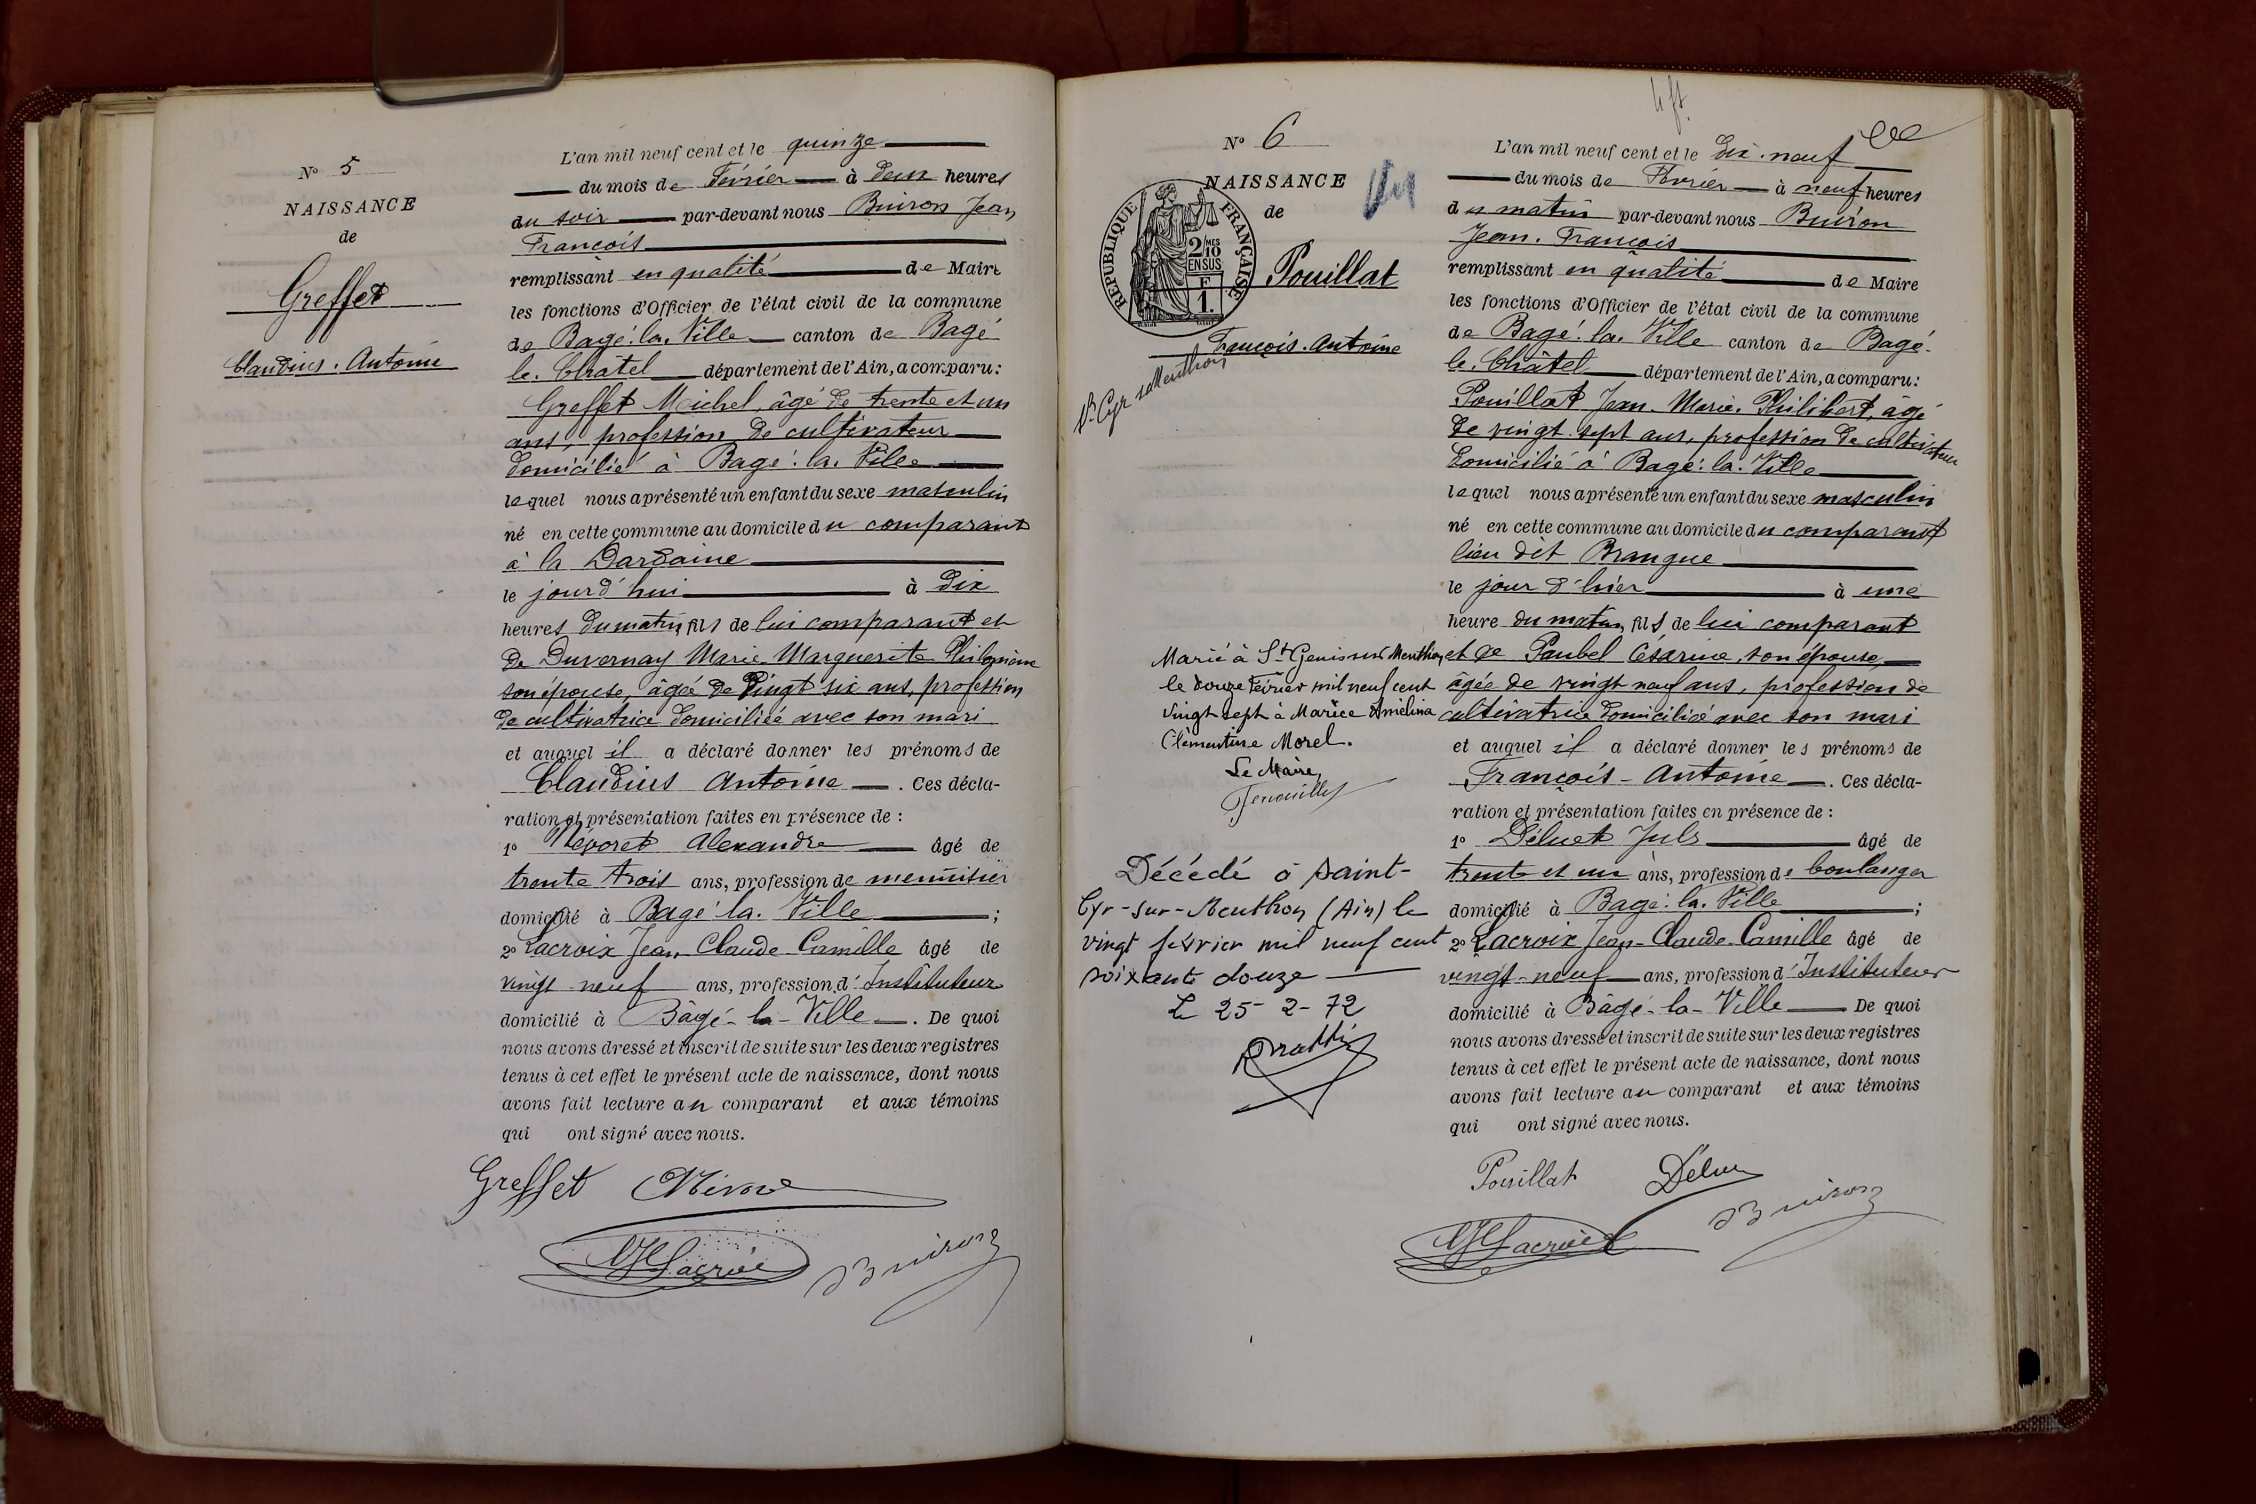 N° 5
NAISSANCE
de
Greffet
Claudius. Antoine
L'an mil neuf cent et le quinze
du mois de Février à deux heures
du soir par-devant nous Buiron Jean
François
remplissant en qualité de Maire
les fonctions d'Officier de l'état civil de la commune
de Bagé. la. Ville canton de Bagé
le. Châtel département de l'Ain, a comparu:
Greffet Michel, âgé de trente et un
ans, profession de cultivateur
domicilié à Bagé. la. Ville
lequel nous a présenté un enfant du sexe masculin
né en cette commune au domicile du comparant
à la Dardaine
le jourd'hui à dix
heures du matin, fils de lui comparant et
de Duvernay Marie Marguerite Philomène
son épouse, âgée de vingt six ans, profession
de cultivatrice domiciliée avec son mari
et auquel il a déclaré donner les prénoms de
Claudius Antoine. Ces décla-
ration et présentation faites en présence de :
1° Alexandre âgé de
trente trois ans, profession de menuisier
domicilié à Bagé la. Ville ;
2° Lacroix Jean Claude Camille âgé de
vingt neuf ans, profession d'Instituteur
domicilié à Bâgé-la-Ville. De quoi
nous avons dressé et inscrit de suite sur les deux registres
tenus à cet effet le présent acte de naissance, dont nous
avons fait lecture au comparant et aux témoins
qui ont signé avec nous.
Greffet
Lacroix Buiron
N° 6
NAISSANCE
de
RÉPUBLIQUE FRANÇAISE
2/10 MES
EN SUS
F
1.
Pouillat
François. Antoine
St Cyr s Menthon
Marié à St Genis sur Menthon
le douze Février mil neuf cent
vingt sept à Marie Amélina
Clémentine Morel.
Le Maire,
Décédé à Saint-
Cyr-sur-Menthon (Ain) le
vingt février mil neuf cent
soixante douze
Le 25-2-72
L'an mil neuf cent et le dix. neuf
du mois de Février à neuf heures
du matin par-devant nous Buiron
Jean. François
remplissant en qualité de Maire
les fonctions d'Officier de l'état civil de la commune
de Bagé. la. Ville canton de Bagé.
le. Châtel département de l'Ain, a comparu:
Pouillat Jean. Marie. Philibert, âgé
de vingt. sept ans, profession de cultivateur
domicilié à Bagé. la. Ville
lequel nous a présenté un enfant du sexe masculin
né en cette commune au domicile du comparant
lieu dit Brangue
le jour d'hier à une
heure du matin, fils de lui comparant
et de Paubel Césarine, son épouse,
âgée de vingt neuf ans, profession de
cultivatrice domiciliée avec son mari
et auquel il a déclaré donner les prénoms de
François-Antoine. Ces décla-
ration et présentation faites en présence de :
1° Déluet Juls âgé de
trente et un ans, profession de boulanger
domicilié à Bagé. la. Ville ;
2° Lacroix Jean-Claude Camille âgé de
vingt-neuf ans, profession d'Instituteur
domicilié à Bâgé-la-Ville De quoi
nous avons dressé et inscrit de suite sur les deux registres
tenus à cet effet le présent acte de naissance, dont nous
avons fait lecture au comparant et aux témoins
qui ont signé avec nous.
Pouillat
Lacroix Buiron